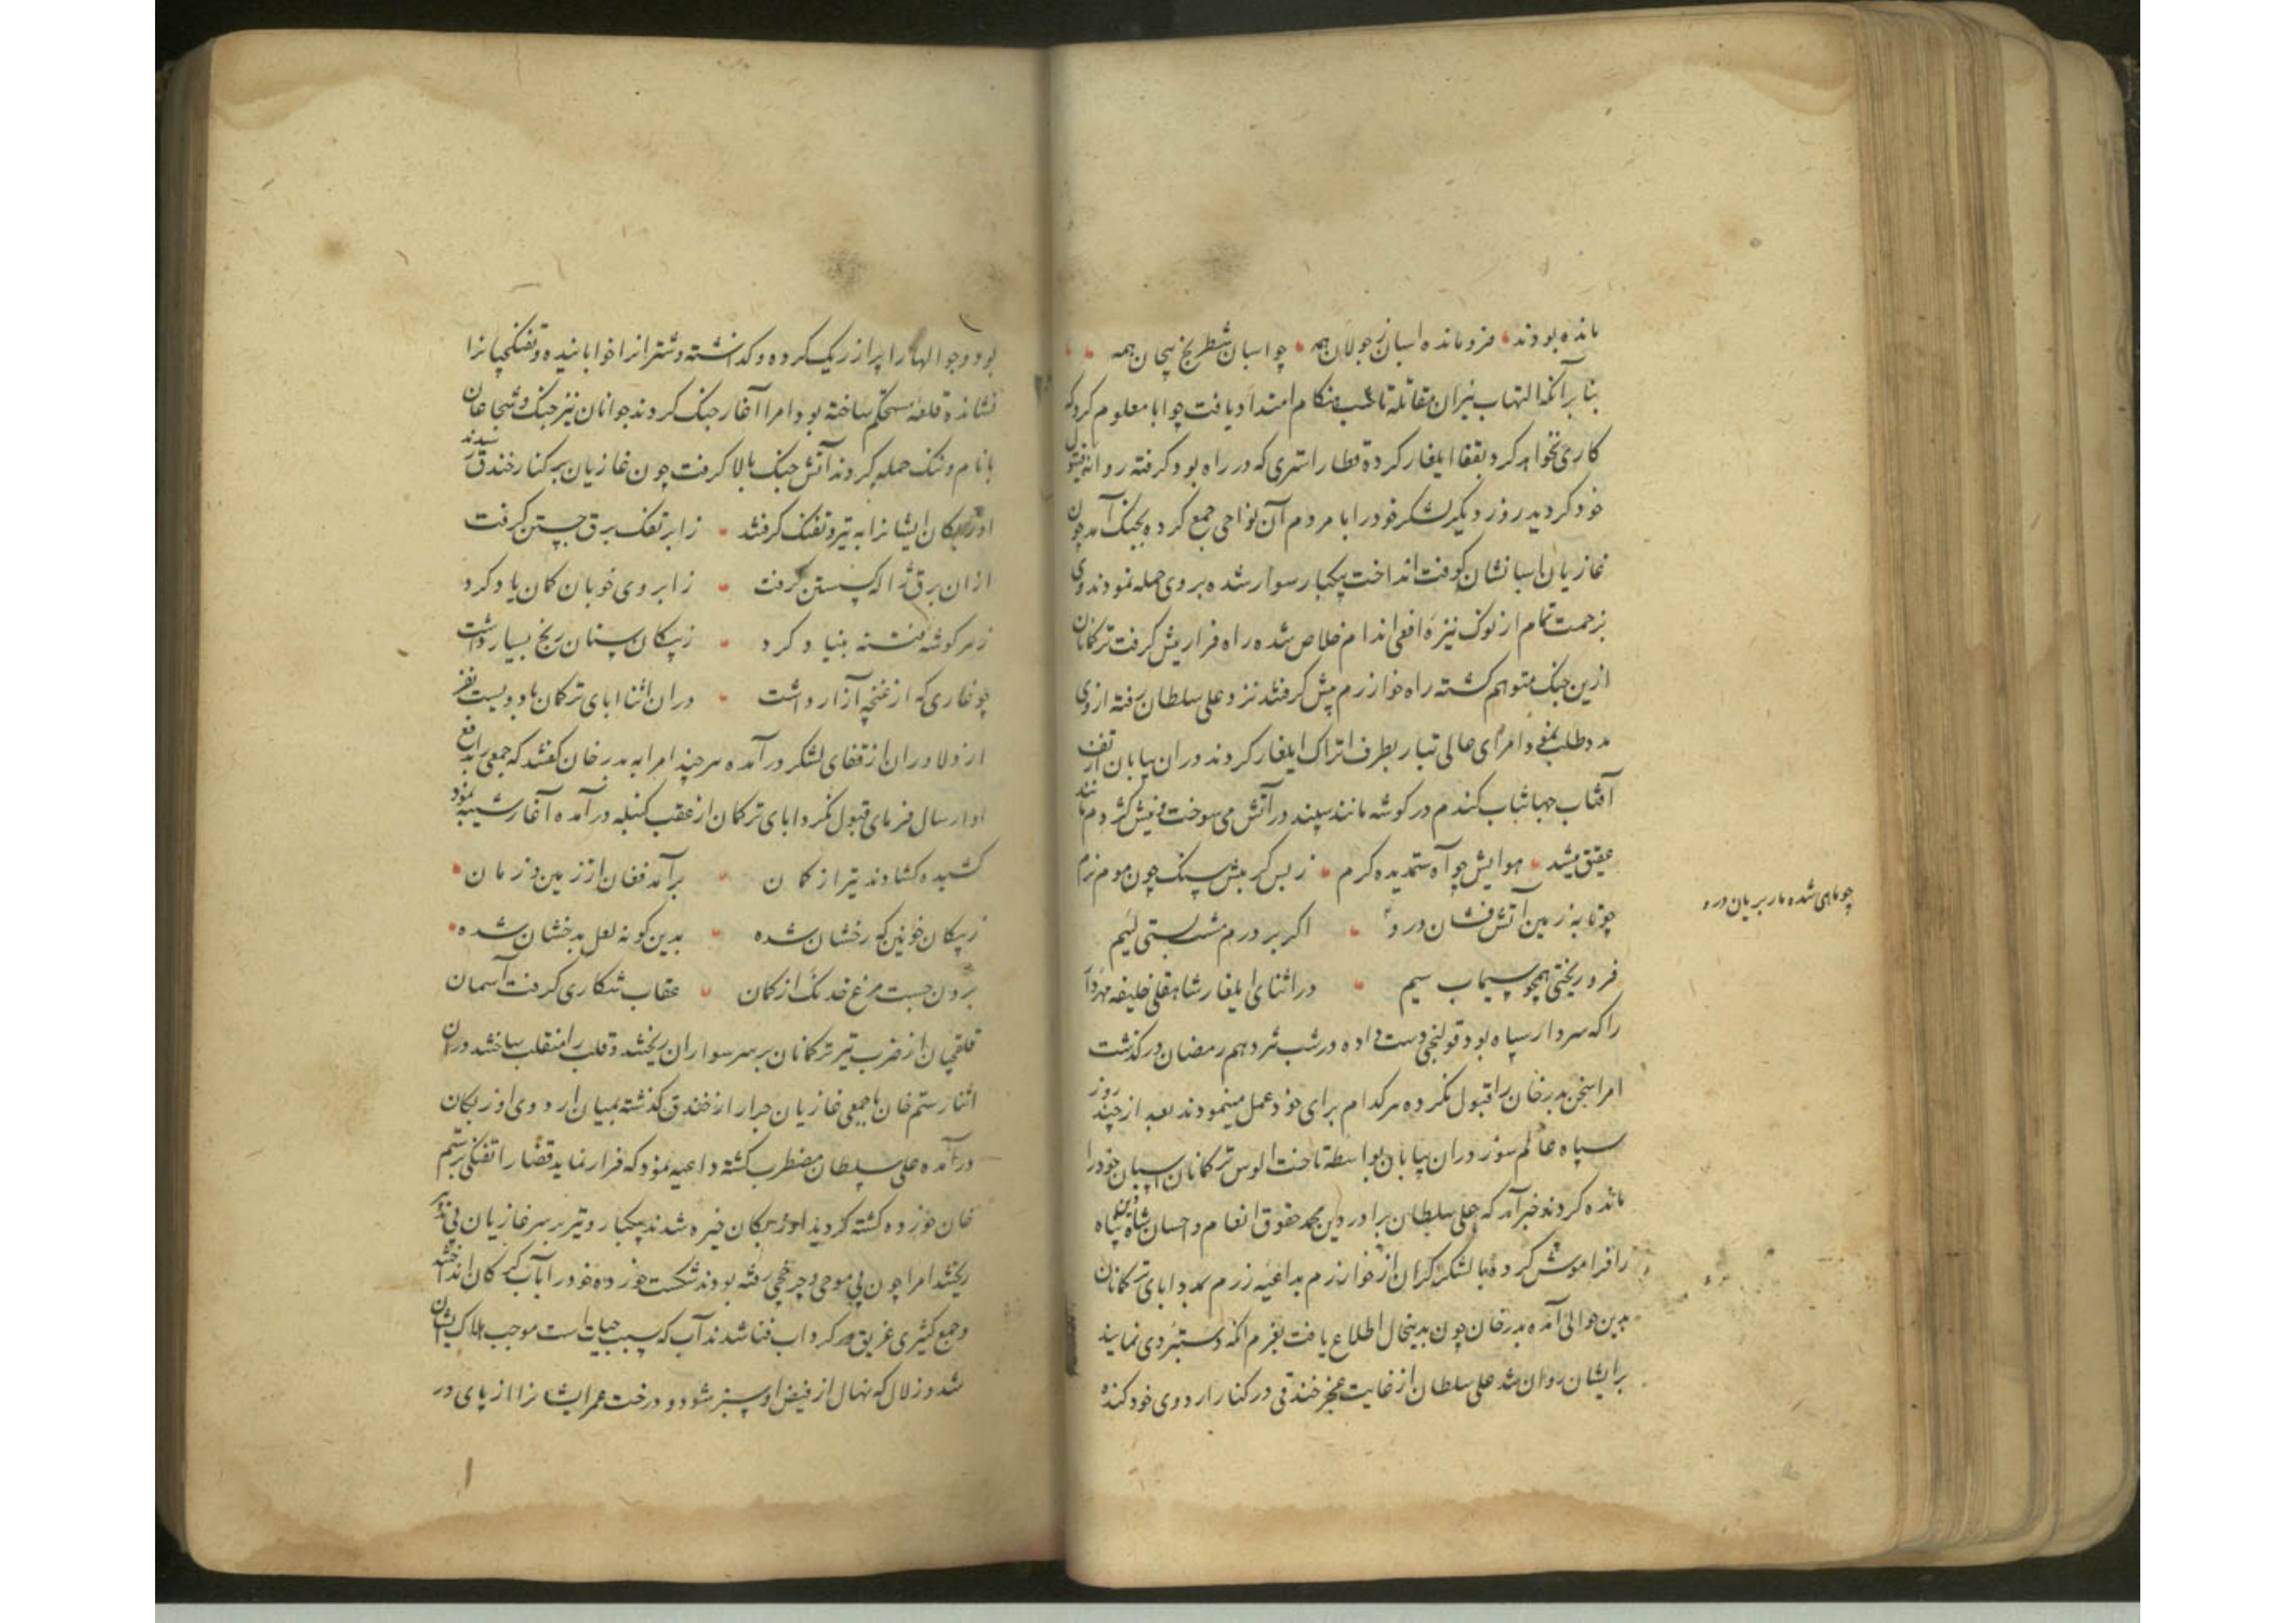 مانده بودند فرومانده اسبان ز جولان همه چو اسبان شطرنج بیجان همه
بنا بر آنکه التهاب نیران مقاتله تا شب هنکام امتداد یافت چو ابا معلوم کرد که
کاری نخواهد کرد بقفا ایلغار کرده قطار استری که در راه بود کرفته روانه
خود کردید روز دیکر لشکر خود را با مردم آن نواحی جمع کرده بجنک آمد چون
غازیان اسبانشان کوفت انداخت یکبار سوار شده بروی حمله نمودند وی
بزحمت تمام از نوک نیزه افعی اندام خلاص شده راه فرار پیش کرفت ترکمانان
ازین جنک متوهم کشته راه خوارزم پیش کرفتند نزد علی سلطان رفته ازوی
مدد طلب و امرای عالی تبار بطرف اتراک ایلغار کردند دران بیابان از تف
آفتاب جهانتاب کندم در کوشه مانند سپند در آتش می سوخت و نیش کژدم مانند
عقیق میشد هوایش چو آه ستمدیده کرم ز بس کرمیش سنک چون موم نرم
چو تابه زمین آتش فشان درو اکر بر درم مشت بستی لئیم
فرو ریختی همچو سیماب سیم در اثنای ایلغار شاهقلی خلیفه مهردار
را که سردار سپاه بود قولنجی دست داده در شب نوزدهم رمضان درکذشت
امرا سخن بدر خان را قبول نکرده هر کدام برای خود عمل مینمودند بعد از چند روز
سپاه عالم سوز دران بیابان بواسطه تاخت الوس ترکمانان اسبان خود را
مانده کردند خبر آمد که علی سلطان برادر دین محمد حقوق انعام و احسان شاه دین پناه
را فراموش کرده با لشکر کران از خوارزم بداعیه رزم بمدد ابای ترکمانان
بدین حوالی آمده بدر خان چون بدینحال اطلاع یافت بعزم آنکه دستبردی نمایند
برایشان روان شد علی سلطان از غایت عجز خندقی در کنار اردوی خود کنده
چو ماهی شده مار بریان درو
بود و جوالها را پر از ریک کرده و کذاشته و شتران را خوابانیده و تفنکچیانرا
نشانده قلعه مستحکم ساخته بود امرا آغاز جنک کردند جوانان نیز جنک و شجاعان
با نام و ننک حمله کردند آتش جنک بالا کرفت چون غازیان بر کنار خندق رسیدند
اوزبکان ایشانرا به تیر و تفنک کرفتند ز ابر تفک برق جستن کرفت
ازان برق ژاله کسستن کرفت ز ابروی خوبان کمان یاد کرد
ز هر کوشه فتنه بنیاد کرد ز پیکان سنان رنج بسیار داشت
چو خاری که از غنچه آزار داشت دران اثنا ابای ترکمان با دویست نفر
از دلاوران از قفای لشکر درآمده هر چند امرا به بدر خان کفتند که جمعی بدافع
او ارسال فرمای قبول نکرد ابای ترکمان از عقب کنبله درآمده آغاز شیبه نمود
کشیده کشادند تیر از کمان برآمد فغان از زمین و زمان
ز پیکان خونین که رخشان شده بدین کونه لعل بدخشان شده
برون جست مرغ خدنک از کمان عقاب شکاری کرفت آسمان
قلقچیان از ضرب تیر ترکمانان بر سر سواران ریختند و قلب را منقلب ساختند دران
اثنا رستم خان با جمعی غازیان جرار از خندق کذشته بمیان اردوی اوزبکان
درآمده علی سلطان مضطرب کشته داعیه نمود که فرار نماید قضا را تفنکی بر رستم
خان خورده کشته کردید اوزبکان خیره شدند یکبار و تیر بر سر غازیان بی تدبیر
ریختند امرا چون بی موجی و چرخچی رفته بودند شکست خورده خود را بآب کرکان انداختند
و جمع کثیری غریق کرداب فنا شدند آب که سبب حیات است موجب هلاک ایشان
شد و زلال که نهال از فیض او سبز شود و درخت عمر ایشانرا از پای در